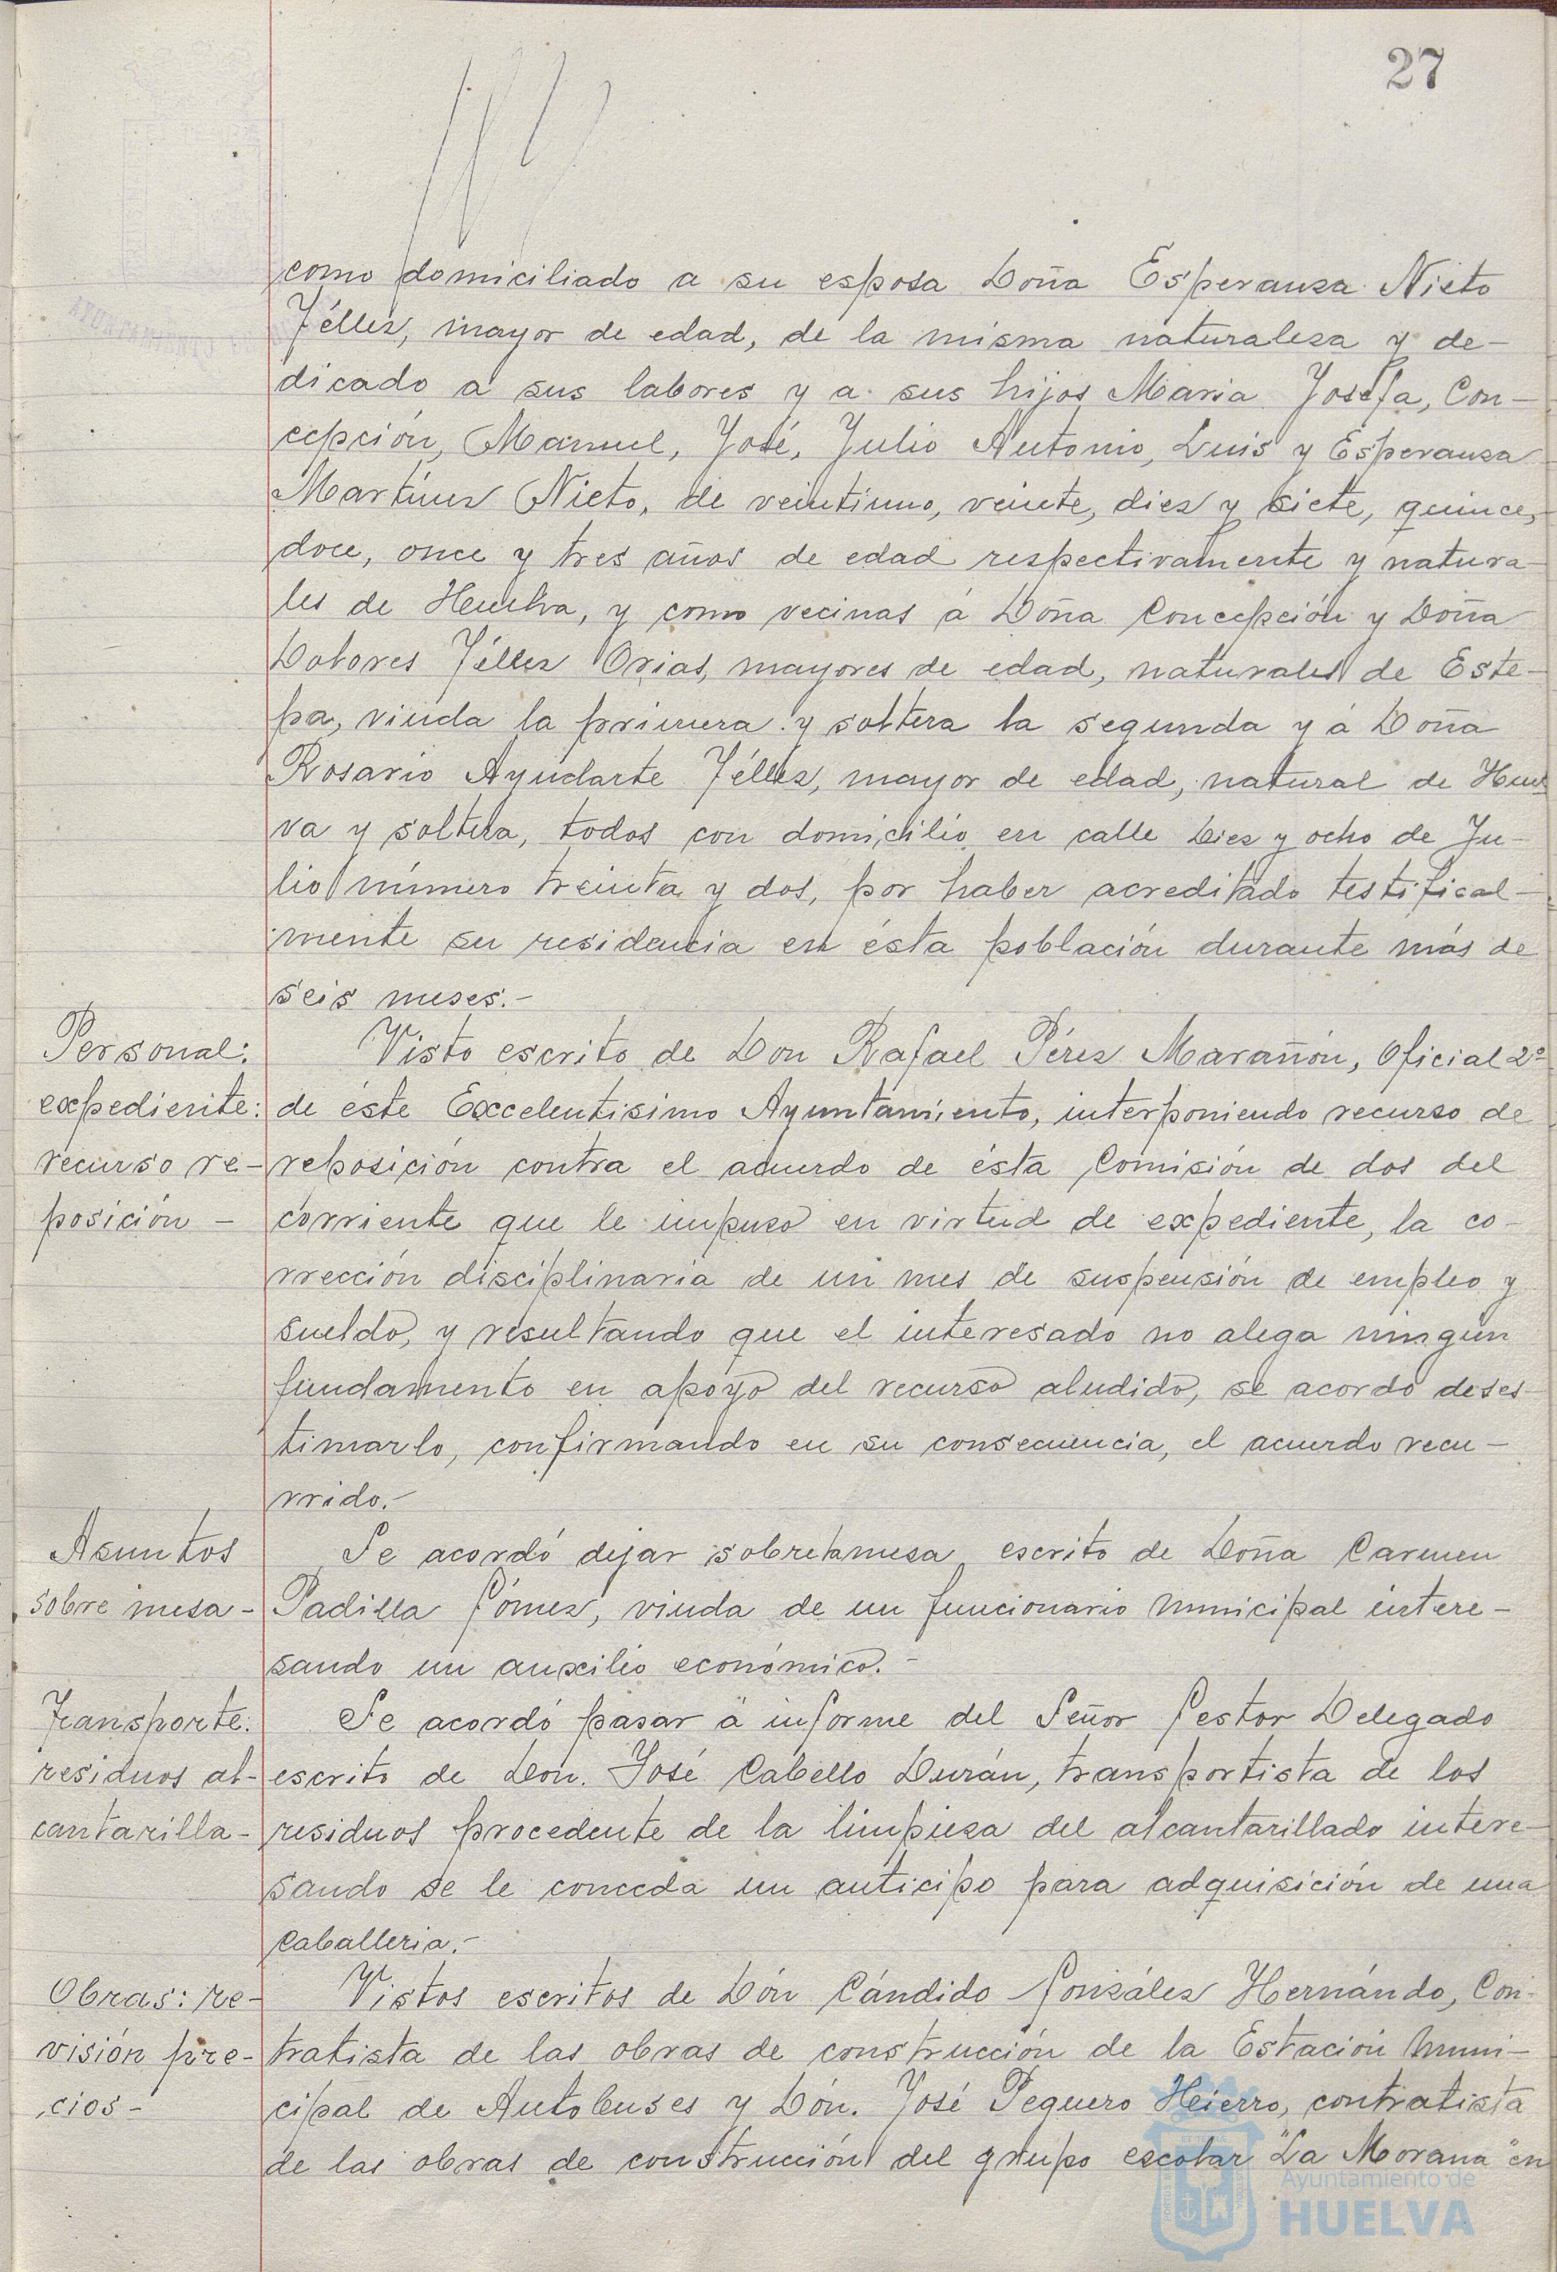 27
como domiciliado a su esposa Doña Esperanza Nieto
Téllez, mayor de edad, de la misma naturaleza y de-
dicado a sus labores y a sus hijos Maria Josefa, Con-
cepción, Manuel, José, Julio Antonio, Luis y Esperanza
Martínez Nieto, de veintiuno, veinte, diez y siete, quince,
doce, once y tres años de edad respectivamente y natura-
les de Huelva, y como vecinas á Doña Concepción y Doña
Dolores Téllez Orias, mayores de edad, naturales de Este-
pa, viuda la primera y soltera la segunda y á Doña
Rosario Ayudarte Téllez, mayor de edad, natural de Huel-
va y soltera, todos con domicilio en calle Diez y ocho de Ju-
lio número treinta y dos, por haber acreditado testifical-
mente su residencia en ésta población durante más de
seis meses.-
Personal:
expediente:
recurso re-
posición -
Visto escrito de Don Rafael Pérez Marañón, Oficial 2º
de éste Excelentisimo Ayuntamiento, interponiendo recurso de
reposición contra el acuerdo de ésta Comisión de dos del
corriente que le impuso en virtud de expediente, la co-
rrección disciplinaria de un mes de suspensión de empleo y
sueldo, y resultando que el interesado no alega ningún
fundamento en apoyo del recurso aludido, se acordó deses-
timarlo, confirmando en su consecuencia, el acuerdo recu-
rrido.-
Asuntos
sobre mesa -
Se acordó dejar sobre la mesa escrito de Doña Carmen
Padilla Gómez, viuda de un funcionario municipal intere-
sando un auxilio económico.-
Transporte:
residuos al-
cantarilla -
Se acordó pasar á informe del Señor Gestor Delegado
escrito de Don. José Cabello Durán, transportista de los
residuos procedente de la limpieza del alcantarillado intere-
sando se le conceda un anticipo para adquisición de una
caballeria.-
Obras: re-
visión pre-
cios -
Vistos escritos de Dón Cándido González Hernándo, Con-
tratista de las obras de construcción de la Estación Muni-
cipal de Autobuses y Dón. José Peguero Heierro, contratista
de las obras de construcción del grupo escolar "La Morana" en
Ayuntamiento de
HUELVA